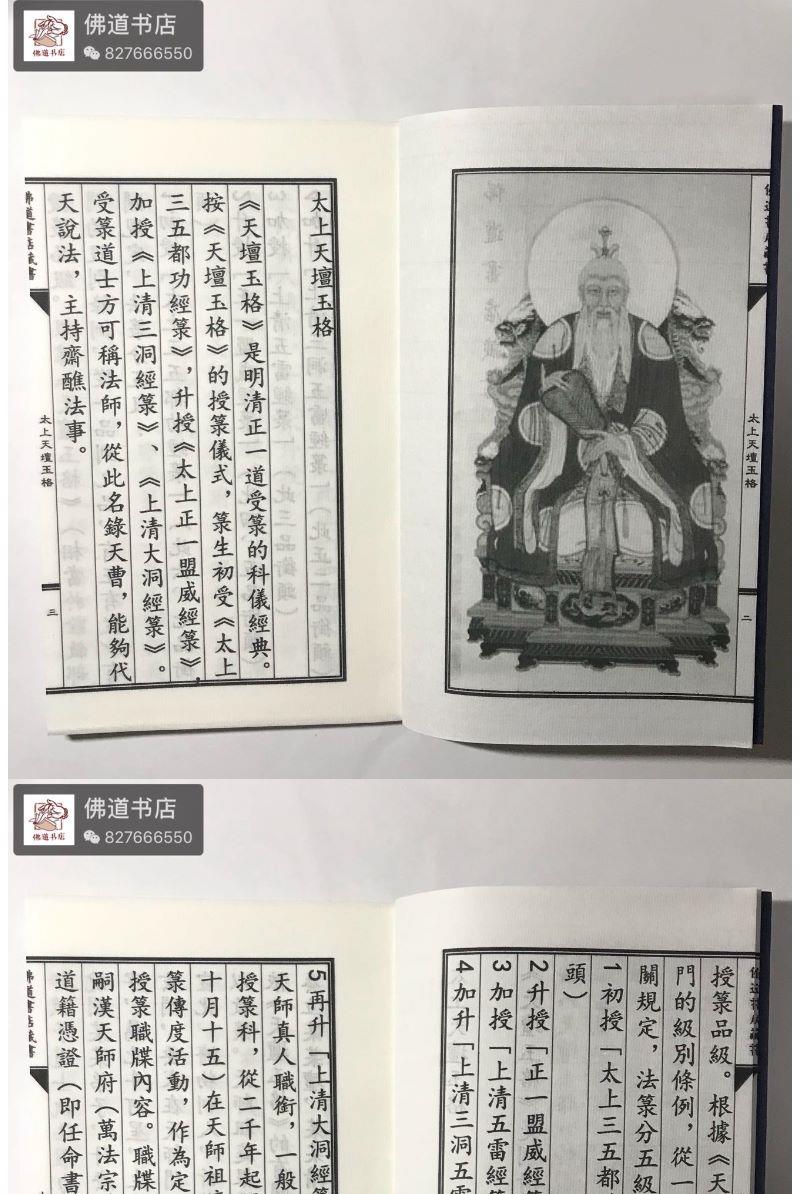 佛道书店
827666550
佛道书店
太上天壇玉格
二
太上天壇玉格
《天壇玉格》是明清正一道受籙的科儀經典。
按《天壇玉格》的授籙儀式，籙生初受《太上
三五都功經籙》，升授《太上正一盟威經籙》
加授《上清三洞經籙》、《上清大洞經籙》。
受籙道士方可稱法師，從此名錄天曹，能夠代
天說法，主持齋醮法事。
佛道書店藏書
太上天壇玉格
三
佛道书店
827666550
佛道书店
授籙品級。根據《天
門的級別條例，從一
關規定，法籙分五級
1初授「太上三五都
頭）
2升授「正一盟威經
3加授「上清五雷經
4加升「上清三洞五
5再升「上清大洞經
天師真人職銜，一般
授籙科，從二千年起
十月十五）在天師祖
籙傳度活動，作為定
授籙職牒內容。職牒
嗣漢天師府（萬法宗
道籍憑證（即任命書
佛道書店藏書